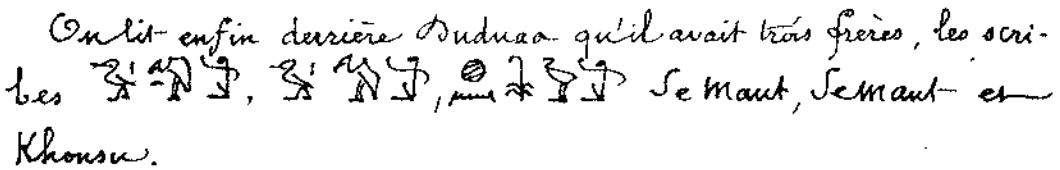 On lit enfin derrière Duduaa qu'il avait trois frères, les scri-
bes , , Semaut, Semaut et
Khonsu.